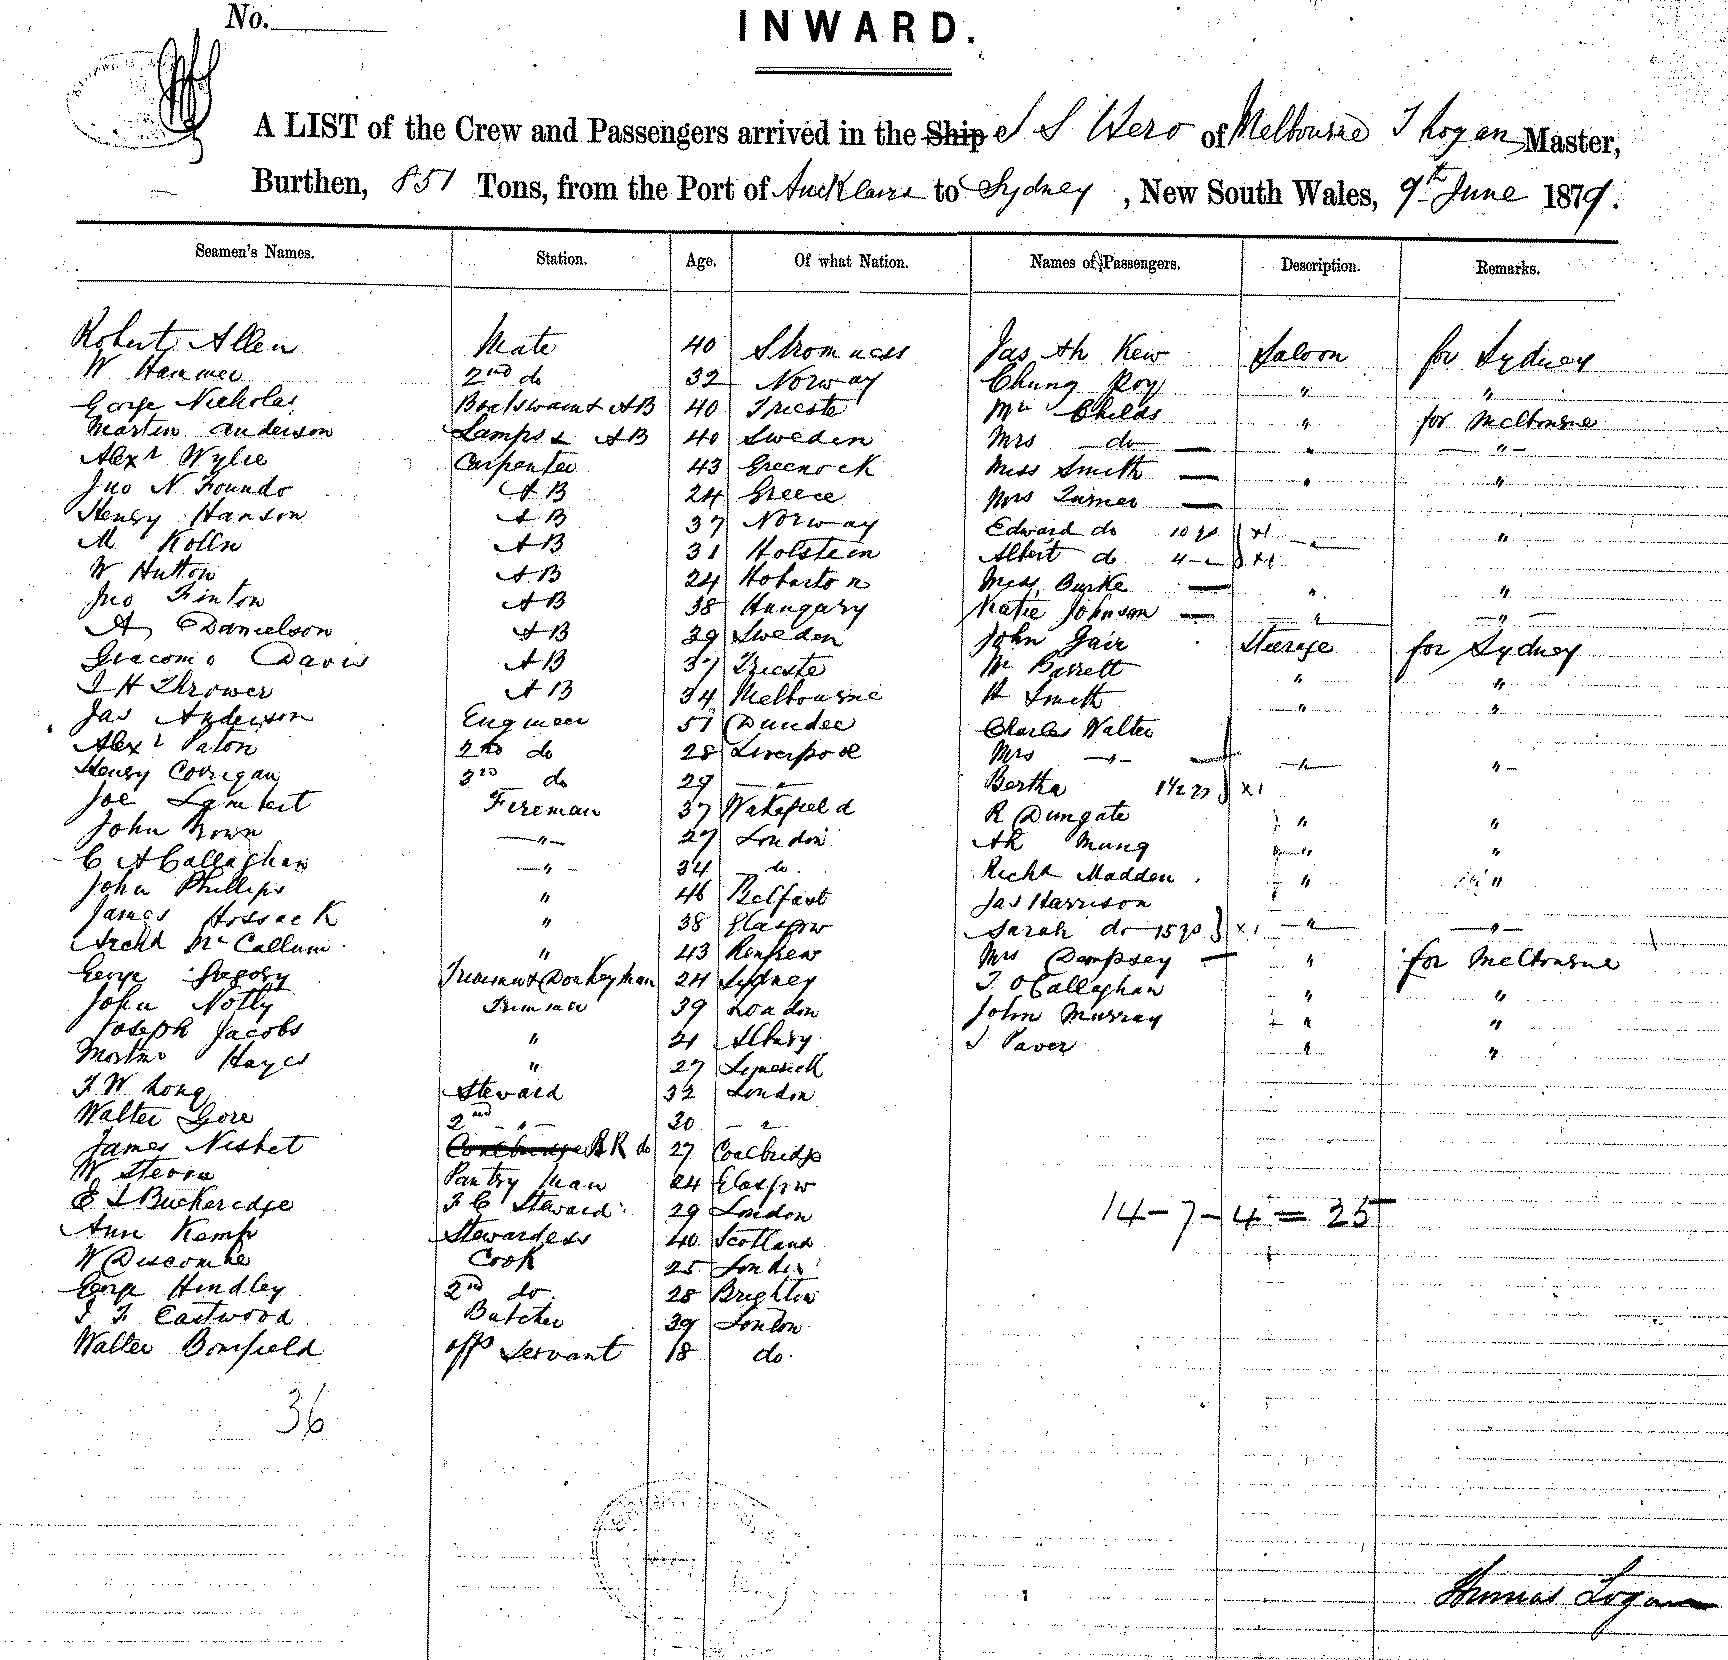 No.
INWARD.
A LIST of the Crew and Passengers arrived in the Ship S S Hero of Melbourne T Logan Master,
Burthen, 851 Tons, from the Port of Auckland to Sydney, New South Wales, 9th June 1879.
Seamen's Names. Station. Age. Of what Nation. Names of Passengers. Description. Remarks.
Robert Allen Mate 40 Stromness Jas Ah Kew Saloon for Sydney
W Hammer 2nd do 32 Norway Chung Roy " "
George Nicholas Boatswain & AB 40 Trieste Mr Childs " for Melbourne
Martin Anderson Lamps & AB 40 Sweden Mrs do " "
Alexr Wylie Carpenter 43 Greenock Miss Smith " "
Jno N Foundo AB 24 Greece Mrs Turner
Henry Hanson AB 37 Norway Edward do 10 yrs x1 " "
M Kolln AB 31 Holstein Albert do 4 " x1
W Hutton AB 24 Hobarton Miss Burke " "
Jno Finton AB 38 Hungary Katie Johnson " "
A Danielson AB 39 Sweden John Gair Steerage for Sydney
Giacomo Davis AB 37 Trieste Mr Barrett " "
J H Thrower AB 34 Melbourne H Smith " "
Jas Anderson Engineer 51 Dundee Charles Walter
Alexr Paton 2nd do 28 Liverpool Mrs " " "
Henry Corrigan 3rd do 29 " Bertha 1 1/2 yrs x1
Joe Lambert Fireman 37 Wakefield R Dungate " "
John Brown " 27 London Ah Mung " "
C A Callaghan " 34 do. Richd Madden " "
John Phillips " 46 Belfast Jas Harrison
James Hossack " 38 Glasgow Sarah do 15 yrs x1 " "
Archd McCallum " 43 Renfrew Mrs Dempsey " for Melbourne
George Gregory Fireman & Donkeyman 24 Sydney T O'Callaghan " "
John Notty Trimmer 39 London John Murray " "
Joseph Jacobs " 21 Albury J Paver " "
Hayes " 27 Limerick
F W Long Steward 32 London
Walter Gore 2nd " 30 "
James Nisbet Coalbridge B R do 27 Coalbridge
W Steven Pantry Man 24 Glasgow
E J Buckeridge F C Steward 29 London
Ann Kemp Stewardess 40 Scotland
W Discombe Cook 25 London
George Hindley 2nd do 28 Brighton
J F Eastwood Butcher 39 London
Walter Bonfield Offs Servant 18 do.
14 - 7 - 4 = 25
36
Thomas Logan